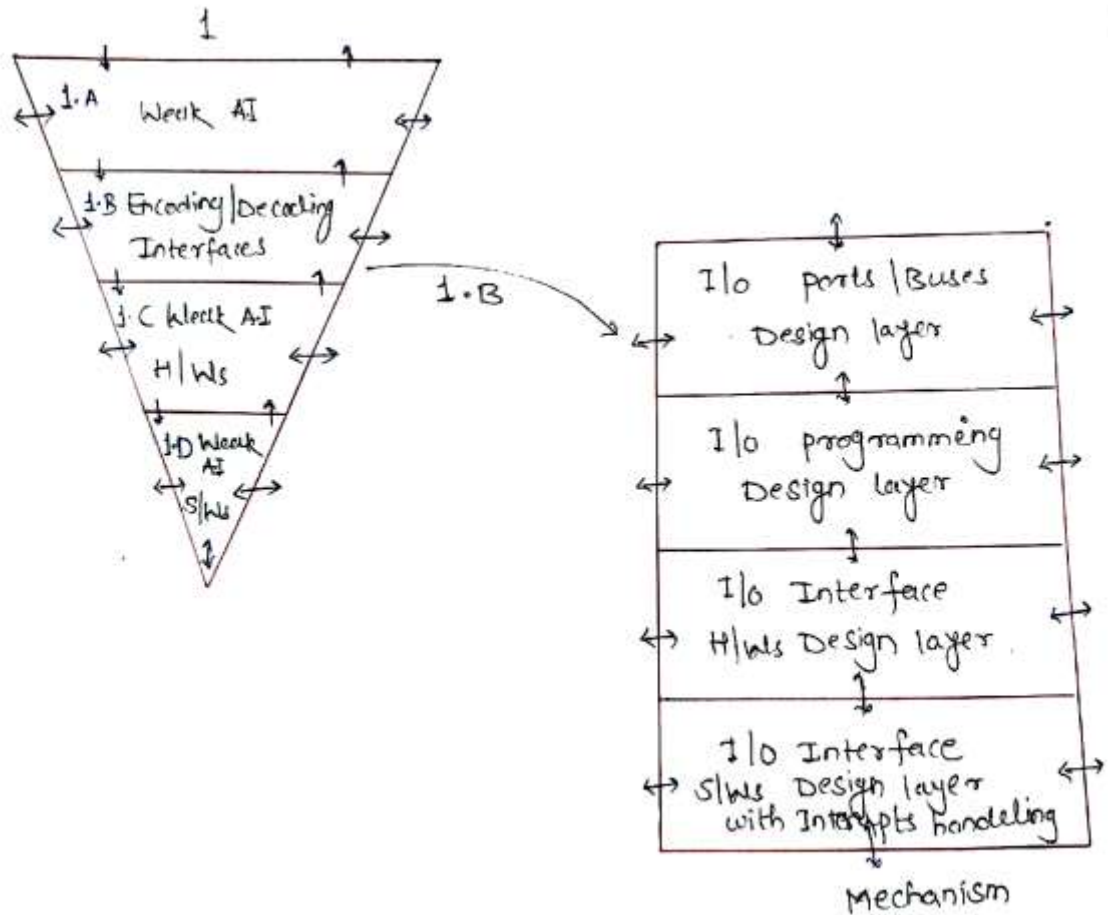 1
1.A
Weak AI
1.B Encoding/Decoding
Interfaces
1.C Weak AI
H/Ws
1.D Weak
AI
S/Ws
1.B
I/o ports/Buses
Design layer
I/o programming
Design layer
I/o Interface
H/Ws Design layer
I/o Interface
S/Ws Design layer
with Interrupts handeling
Mechanism